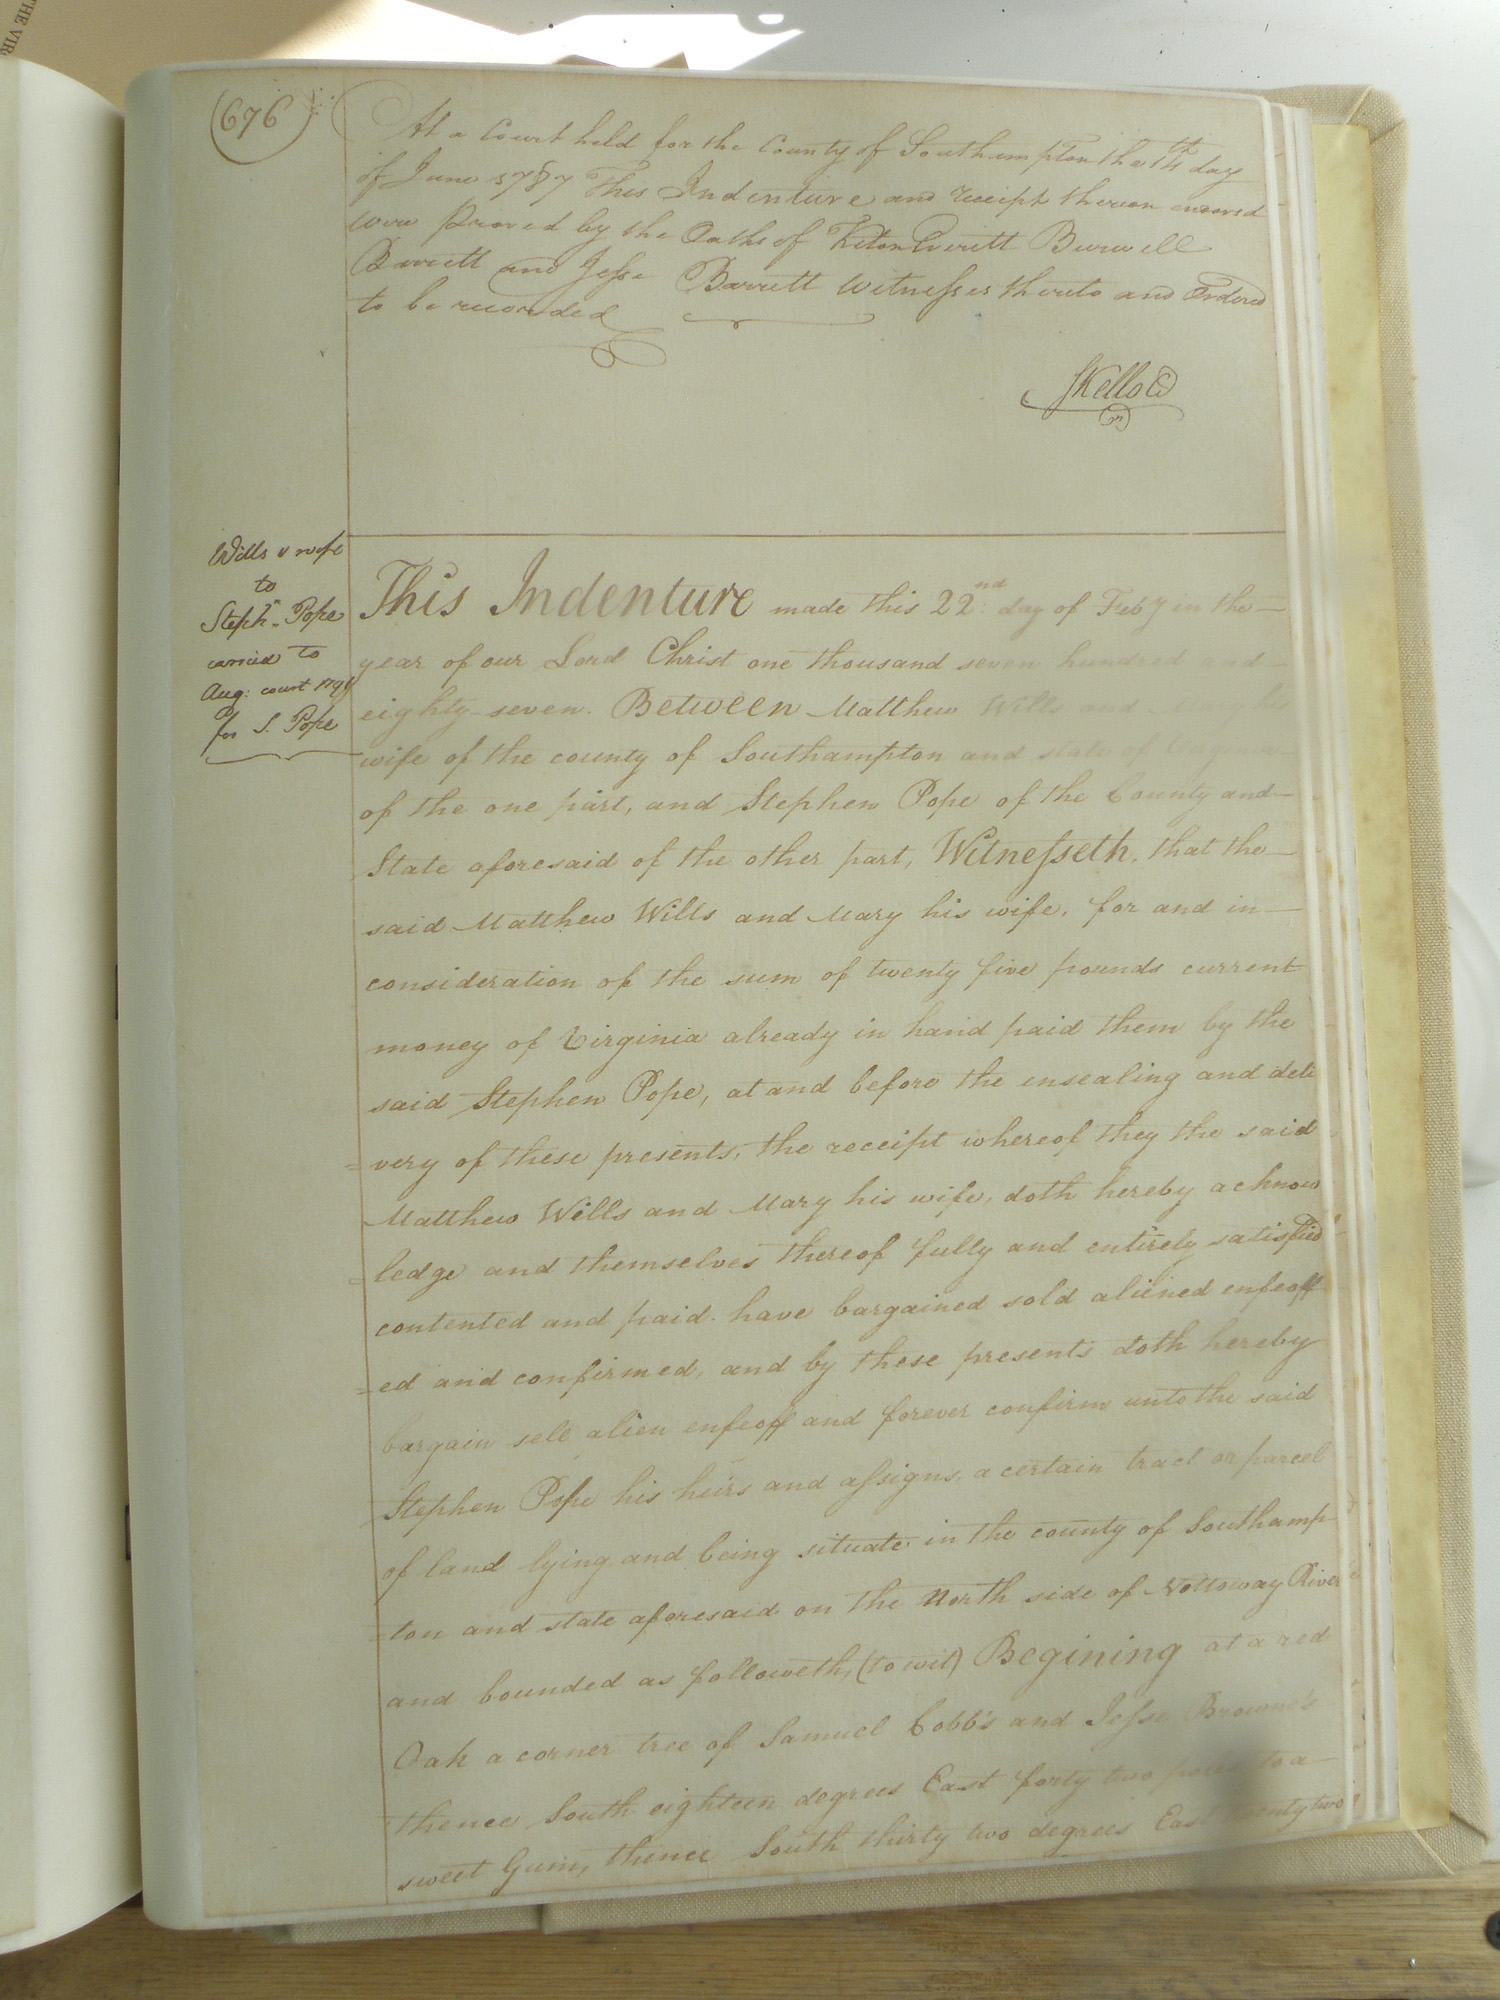 THE VIR
(676)
At a Court held for the County of Southampton the 14th day
of June 1787 This Indenture and receipt thereon endorsed
were proved by the Oaths of Everitt Burwell
Barrett and Jesse Barrett Witnesses thereto and Ordered
to be recorded
SKello
Wills & wife
to
Steph.n Pope
carried to
Aug: court
for S. Pope
This Indenture made this 22nd: day of Feby in the
year of our Lord Christ one thousand seven hundred and
eighty-seven. Between Matthew Wills and Mary his
wife of the county of Southampton and state of Virginia
of the one part, and Stephen Pope of the County and
State aforesaid of the other part, Witnesseth, that the
said Matthew Wills and Mary his wife, for and in
consideration of the sum of twenty five pounds current
money of Virginia already in hand paid them by the
said Stephen Pope, at and before the ensealing and deli
=very of these presents, the receipt whereof they the said
Matthew Wills and Mary his wife, doth hereby acknow
=ledge and themselves thereof fully and entirely satisfied
contented and paid. have bargained sold aliened enfeoff
=ed and confirmed, and by these presents doth hereby
bargain sell alien enfeoff and forever confirm unto the said
Stephen Pope his heirs and assigns, a certain tract or parcel
of land lying and being situate in the county of Southamp
=ton and state aforesaid on the North side of Nottoway River
and bounded as followeth, (to wit) Begining at a red
Oak a corner tree of Samuel Cobb's and Jesse Browne's
thence South eighteen degrees East forty two poles to a
sweet Gum, thence South thirty two degrees East twenty two